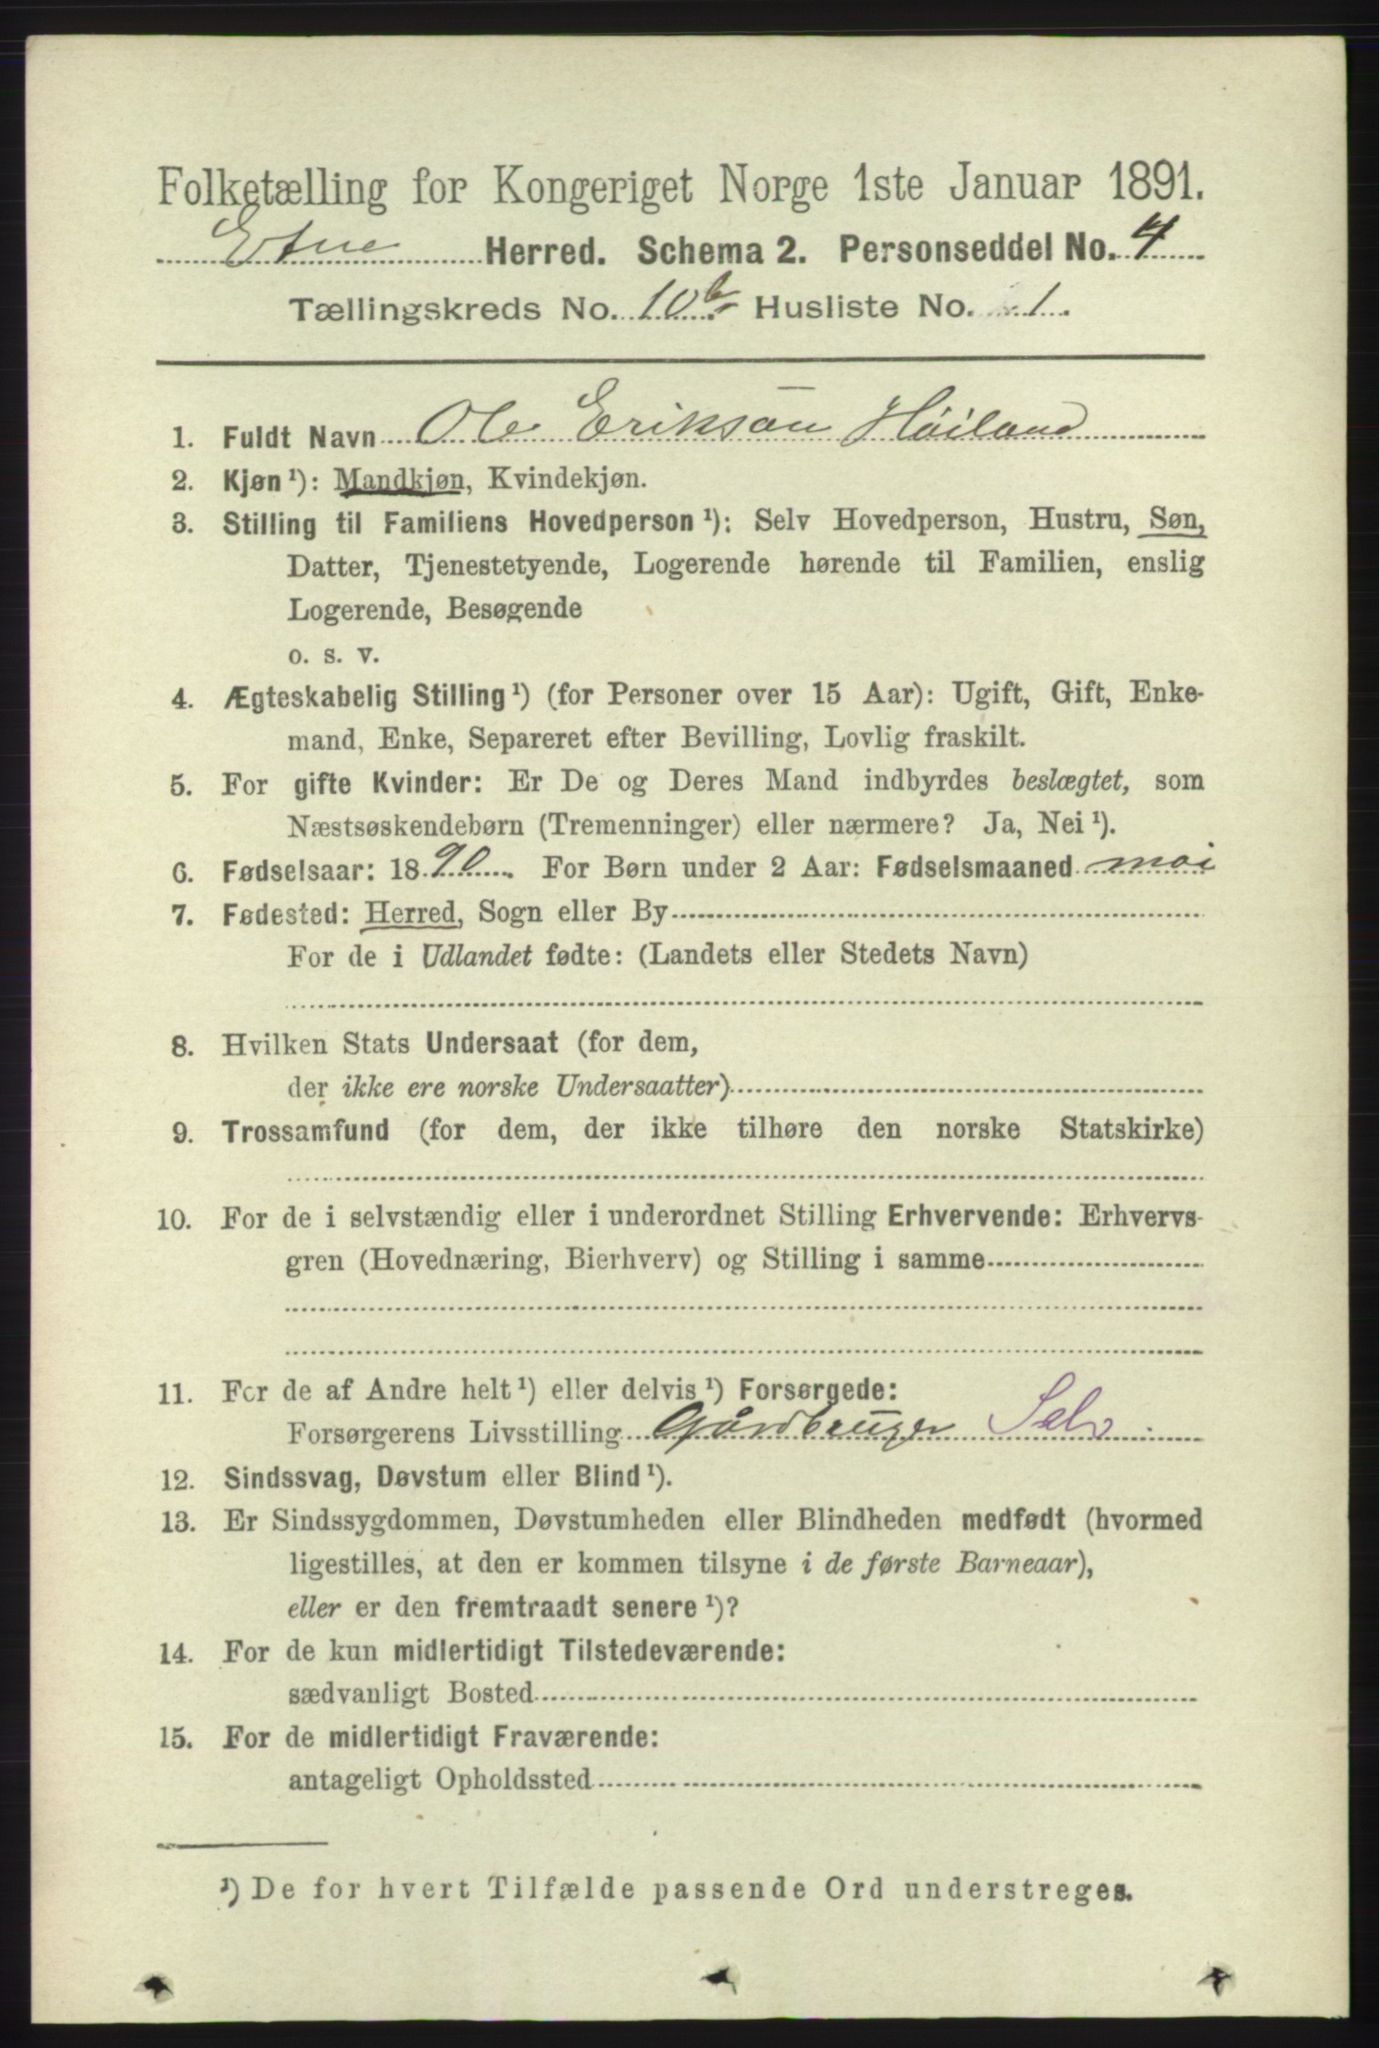 Folketælling for Kongeriget Norge 1ste Januar 1891.
Etne Herred. Schema 2. Personseddel No. 4
Tællingskreds No. 10b Husliste No. 1.
1. Fuldt Navn Ole Eriksøn Høiland
2. Kjøn ¹): Mandkjøn, Kvindekjøn.
3. Stilling til Familiens Hovedperson ¹): Selv Hovedperson, Hustru, Søn,
Datter, Tjenestetyende, Logerende hørende til Familien, enslig
Logerende, Besøgende
o. s. v.
4. Ægteskabelig Stilling ¹) (for Personer over 15 Aar): Ugift, Gift, Enke-
mand, Enke, Separeret efter Bevilling, Lovlig fraskilt.
5. For gifte Kvinder: Er De og Deres Mand indbyrdes beslægtet, som
Næstsøskendebørn (Tremenninger) eller nærmere? Ja, Nei ¹).
6. Fødselsaar: 1890. For Børn under 2 Aar: Fødselsmaaned mai
7. Fødested: Herred, Sogn eller By
For de i Udlandet fødte: (Landets eller Stedets Navn)
8. Hvilken Stats Undersaat (for dem,
der ikke ere norske Undersaatter)
9. Trossamfund (for dem, der ikke tilhøre den norske Statskirke)
10. For de i selvstændig eller i underordnet Stilling Erhvervende: Erhvervs-
gren (Hovednæring, Bierhverv) og Stilling i samme
11. For de af Andre helt ¹) eller delvis ¹) Forsørgede:
Forsørgerens Livsstilling Gårdbruger Selv.
12. Sindssvag, Døvstum eller Blind ¹).
13. Er Sindssygdommen, Døvstumheden eller Blindheden medfødt (hvormed
ligestilles, at den er kommen tilsyne i de første Barneaar),
eller er den fremtraadt senere ¹)?
14. For de kun midlertidigt Tilstedeværende:
sædvanligt Bosted
15. For de midlertidigt Fraværende:
antageligt Opholdssted
¹) De for hvert Tilfælde passende Ord understreges.